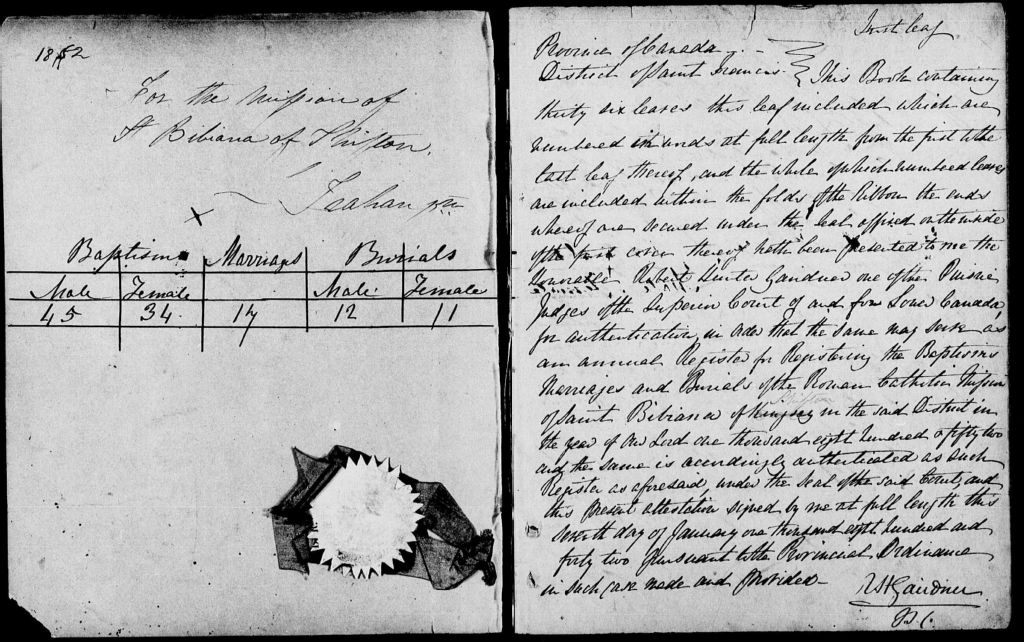 1852
For the Mission of
St Bibiana of Shipton.
Trahan ptre
Baptism Marriages Burials
Male Female Male Female
45 34 17 12 11
First leaf
Province of Canada
District of Saint Francis } This Book containing
thirty six leaves this leaf included which are
numbered in words at full length from the first to the
last leaf thereof, and the whole of which numbered leaves
are included within the folds of the Ribbon the ends
whereof are secured under the Seal affixed on the inside
of the first cover thereof hath been presented to me the
Honorable Robert Hunter Gairdner one of the Puisne
Judges of the Superior Court of and for Lower Canada,
for authentication, in order that the same may serve as
an annual Register for Registering the Baptisms
Marriages and Burials of the Roman Catholic Mission
Shipton
of Saint Bibiana of Kingsey in the said District in
the year of Our Lord one thousand eight hundred & fifty two
and the same is accordingly authenticated as such
Register as aforesaid under the Seal of the said Court, and
this present attestation signed by me at full length this
seventh day of January one thousand eight hundred and
forty two pursuant to the Provincial Ordinance
in such case made and provided
RHGairdner